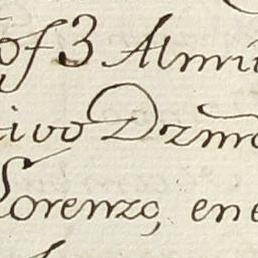 of 3 Almi
ivo Dzmo
Lorenzo, en e